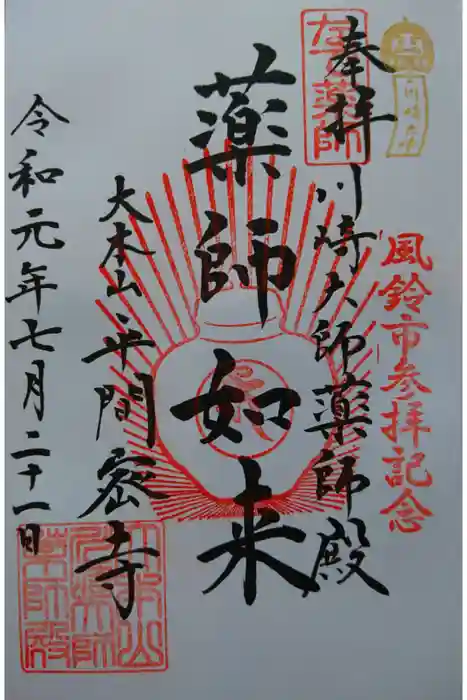 奉拝
川崎大師薬師殿
風鈴市参拝記念
薬師如来
大本山平間密寺
令和元年七月二十一日